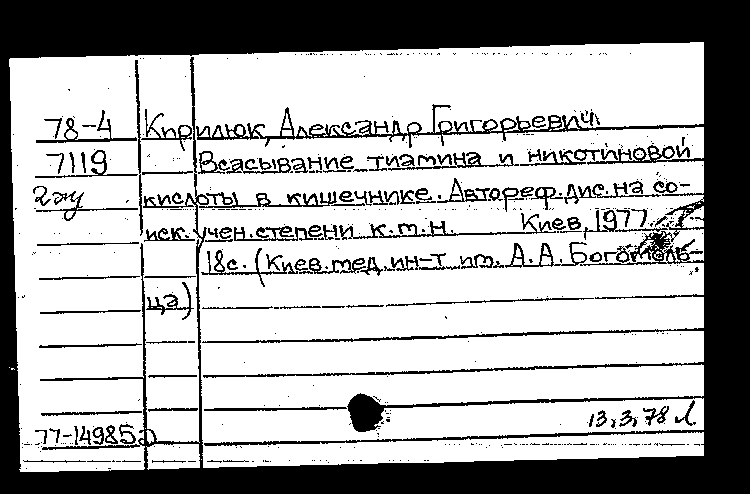 78-4 Кирилюк, Александр Григорьевич.
7119 Всасывание тиамина и никотиновой
2эку кислоты в кишечнике. Автореф.дис.на со-
иск.учен.степени к.м.н. Киев, 1977
18с. (Киев.мед.ин-т им. А.А. Богомоль-
ца)
77-14985а 13.3.78 Л